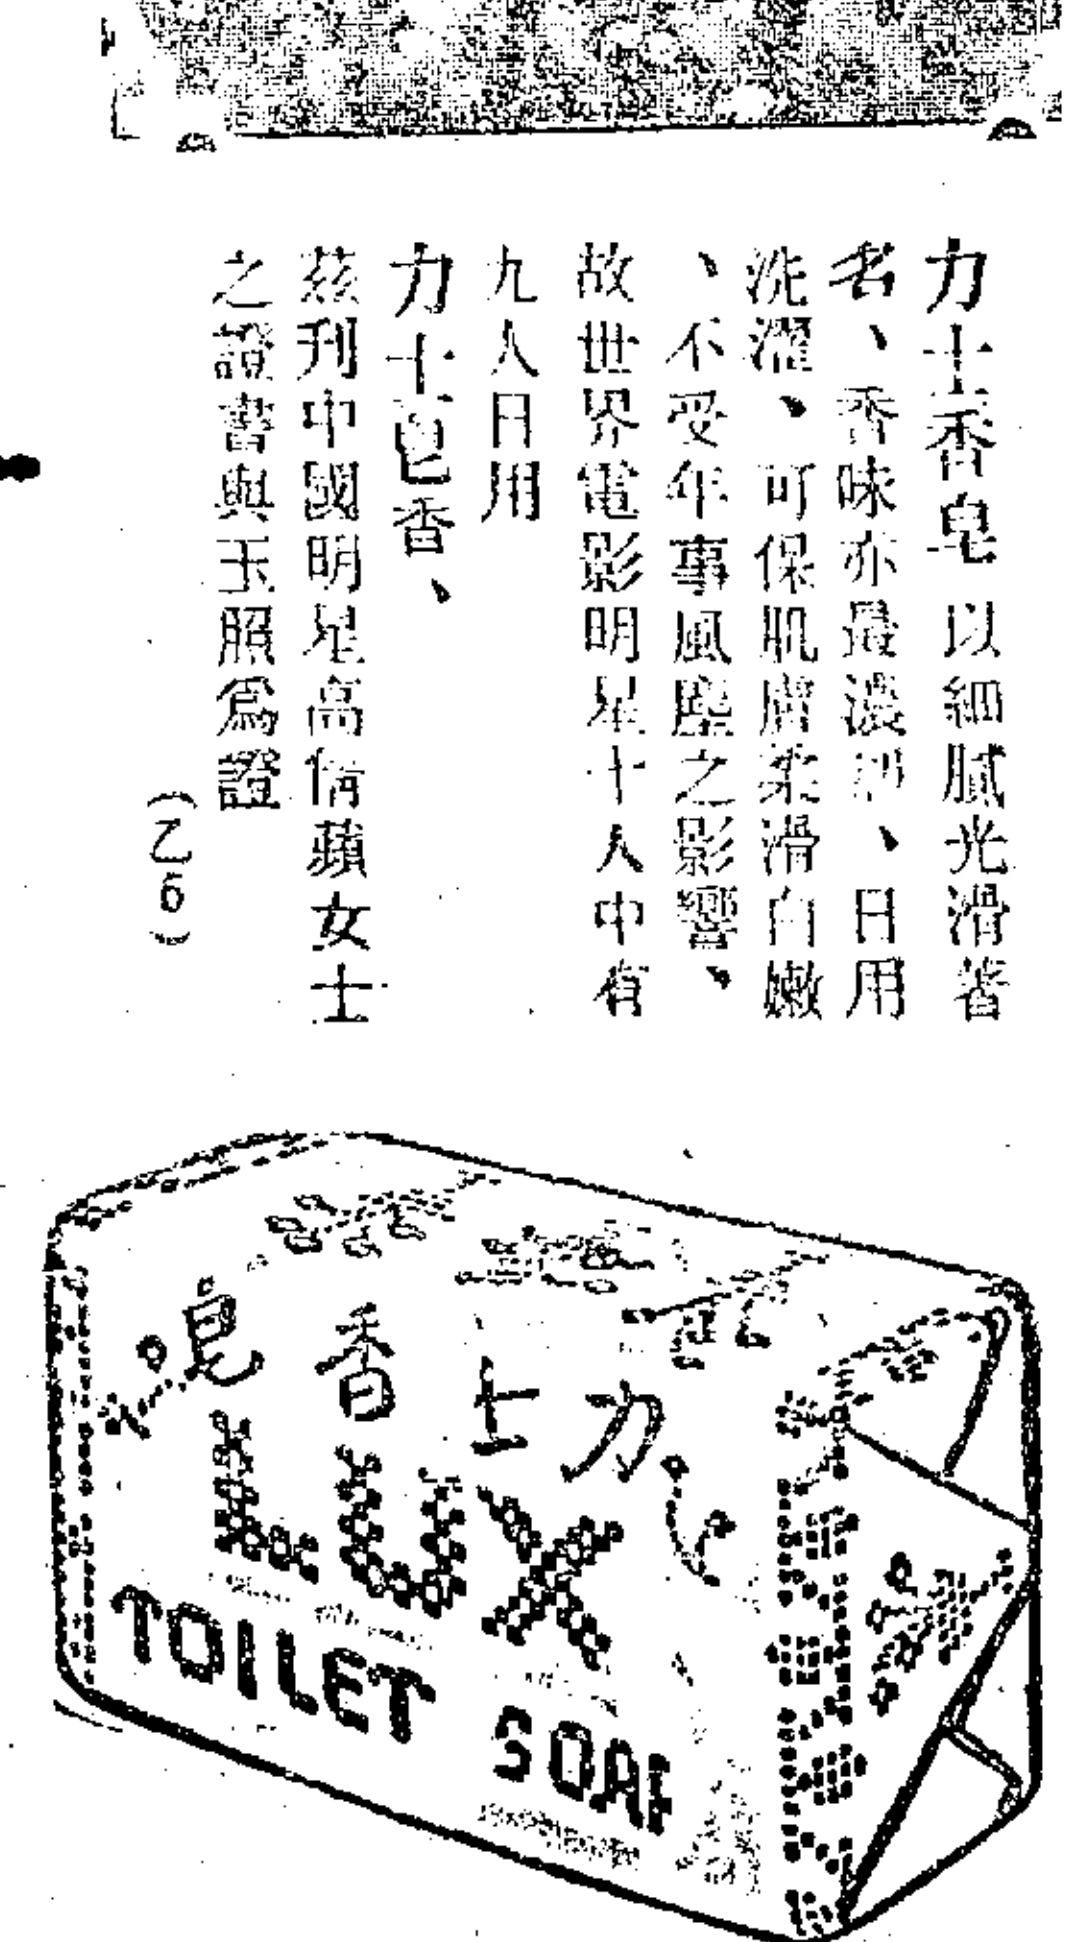 力士香皂 以細膩光滑著
名、香味亦最濃郁、日用
洗濯、可保肌膚柔滑白嫩
、不受年事風塵之影響、
故世界電影明星十人中有
九人日用
力士皂香、
茲刋中國明星高倩蘋女士
之證書與玉照爲證
(乙6)
皂香士力
LUX
TOILET SOAP